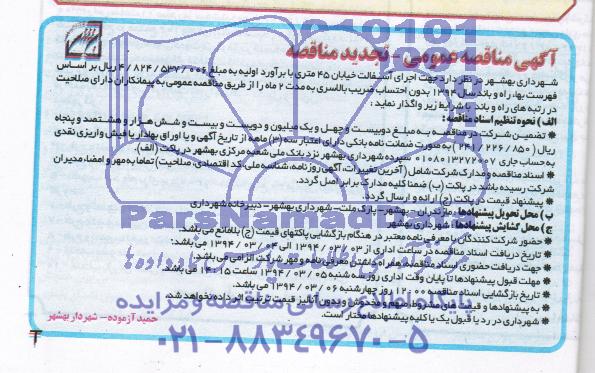 آگهی مناقصه عمومی - تجدید مناقصه
شهرداری بهشهر در نظر دارد جهت اجرای آسفالت خیابان ۴۵ متری با برآورد اولیه به مبلغ ۴/۸۲۴/۵۳۷/۰۰۶ ریال بر اساس
فهرست بها، راه و باند سال ۱۳۹۴ بدون احتساب ضریب بالاسری به مدت ۲ ماه را از طریق مناقصه عمومی به پیمانکاران دارای صلاحیت
در رتبه های راه و باند با شرایط زیر واگذار نماید:
الف) نحوه تنظیم اسناد مناقصه:
* تضمین شرکت در مناقصه به مبلغ دویست و چهل و یک میلیون و دویست و بیست و شش هزار و هشتصد و پنجاه
ریال (۲۴۱/۲۲۶/۸۵۰) به صورت ضمانت نامه بانکی دارای اعتبار سه (۳) ماهه از تاریخ آگهی و یا اوراق بهادار یا فیش واریزی نقدی
به حساب جاری ۰۱۰۸۰۱۳۲۷۲۰۰۷ سپرده شهرداری بهشهر نزد بانک ملی شعبه مرکزی بهشهر در پاکت (الف).
* اسناد مناقصه و مدارک شرکت شامل (آخرین تغییرات، آگهی روزنامه، شناسه ملی، کد اقتصادی، صلاحیت) تماماً به مهر و امضاء مدیران
شرکت رسیده باشد در پاکت (ب) ضمناً کلیه مدارک برابر اصل گردد.
* پیشنهاد قیمت در پاکت (ج) ارائه و ارسال گردد.
ب) محل تحویل پیشنهادها: مازندران - بهشهر - پارک ملت - شهرداری بهشهر - دبیرخانه شهرداری
ج) محل گشایش پیشنهادها: شهرداری بهشهر
* حضور شرکت کنندگان با معرفی نامه معتبر در هنگام بازگشایی پاکتهای قیمت (ج) بلامانع می باشد.
* تاریخ دریافت اسناد مناقصه در ساعت اداری از ۱۳۹۴/۰۳/۰۳ الی ۱۳۹۴/۰۳/۰۴ می باشد.
* جهت دریافت حضوری اسناد مناقصه همراه داشتن معرفی نامه و مهر شرکت الزامی می باشد.
* مهلت قبول پیشنهادها تا پایان وقت اداری روز سه شنبه ۱۳۹۴/۰۳/۰۵ ساعت ۱۴:۱۵ می باشد.
* تاریخ بازگشایی اسناد مناقصه ۱۲:۰۰ روز چهارشنبه ۱۳۹۴/۰۳/۰۶ می باشد.
* به پیشنهادها و قیمت های مشروط، مبهم و مخدوش و بدون آنالیز قیمت ترتیب اثر داده نخواهد شد.
* شهرداری در رد یا قبول یک یا کلیه پیشنهادها مختار است.
حمید آزموده - شهردار بهشهر
ParsNamadData
پایگاه اطلاع رسانی مناقصه و مزایده
۰۲۱-۸۸۳۴۹۶۷۰-۵